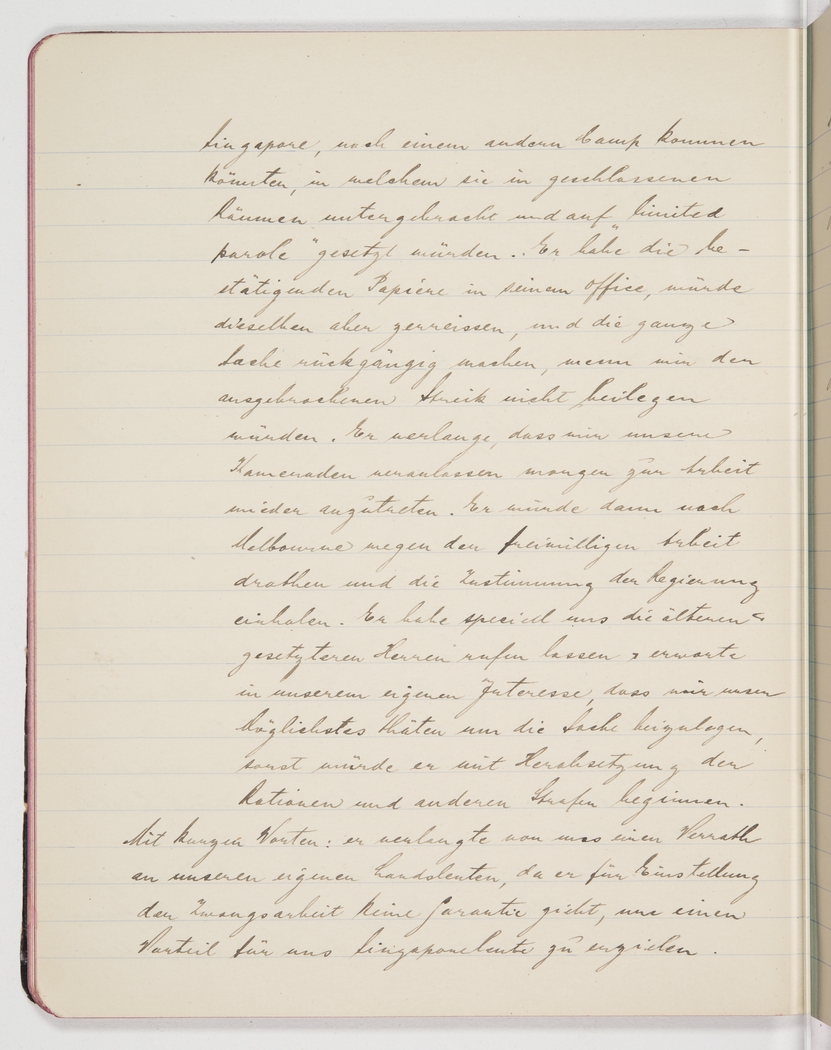 Singapore, nach einem andern Camp kommen
könnten, in welchem sie in geschlossenen
Räumen untergebracht und auf "limited
parole" gesetzt würden. Er habe die be-
stätigenden Papiere in seinem Office, würde
dieselben aber zerreissen, und die ganze
Sache rückgängig machen, wenn wir den
ausgebrochenen Streik nicht beilegen
würden. Er verlange, dass wir unsere
Kameraden veranlassen morgen zur Arbeit
wieder anzutreten. Er würde dann nach
Melbourne wegen der freiwilligen Arbeit
drathen und die Zustimmung der Regierung
einholen. Er habe speciell uns die älteren &
gesetzteren Herren rufen lassen & erwarte
in unserem eigenen Interesse, dass wir unser
Möglichstes thäten um die Sache beizulegen,
sonst würde er mit Herabsetzung der
Rationen und anderen Strafen beginnen.
Mit kurzen Worten: er verlangte von uns einen Verrath
an unseren eigenen Landsleuten, da er für Einstellung
der Zwangsarbeit keine Garantie giebt, um einen
Vorteil für uns Singaporeleute zu erzielen.